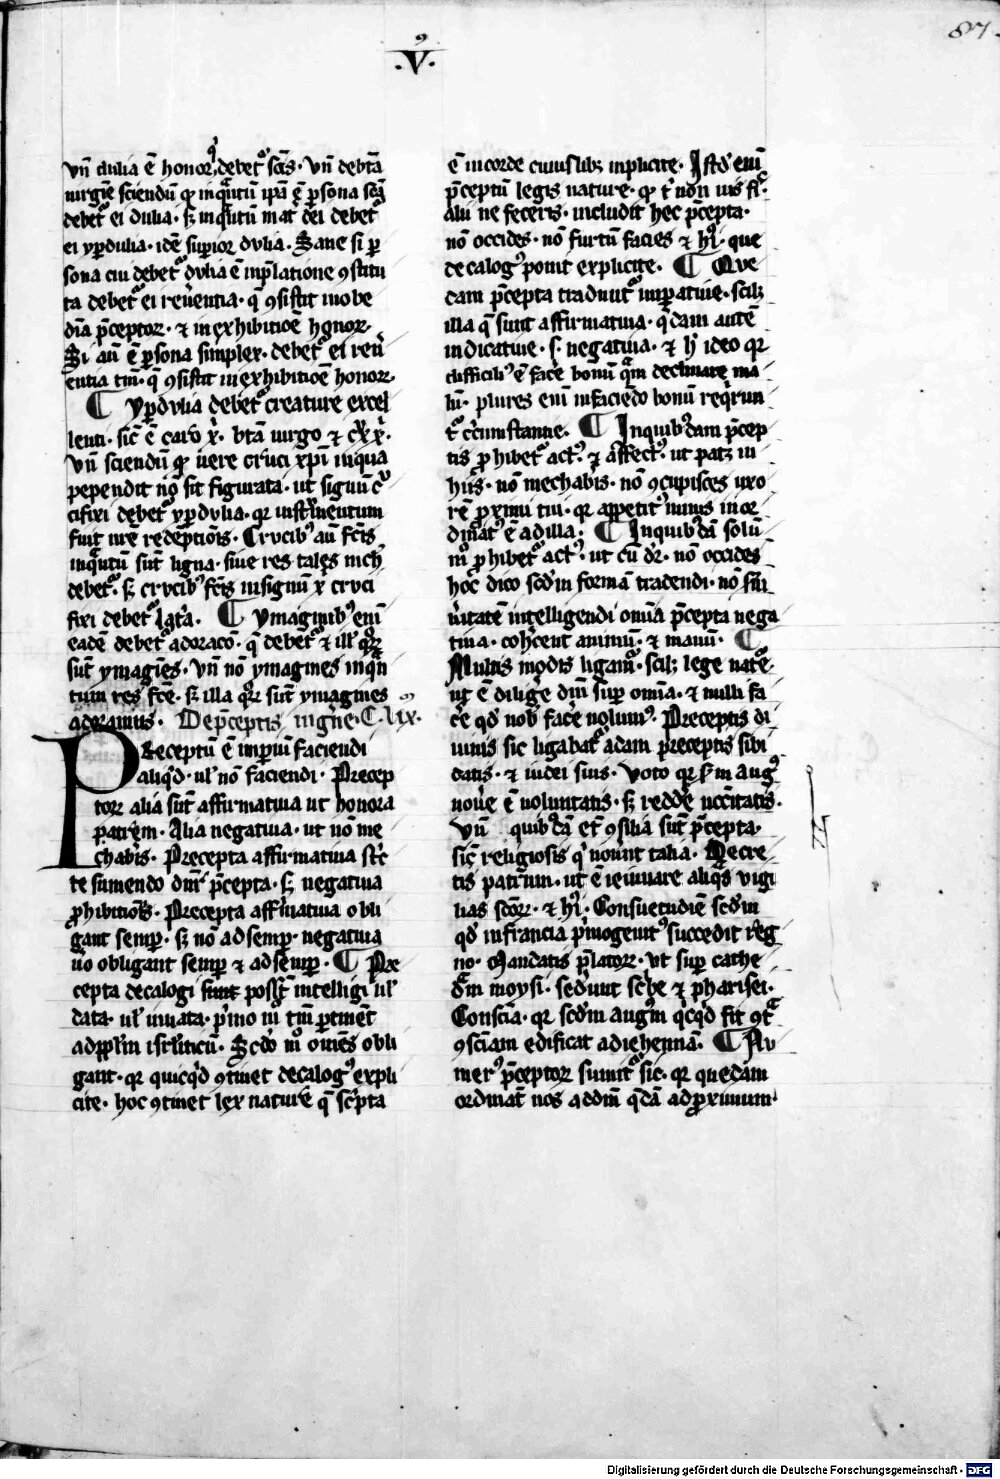 87.
.V.⁹
vñ dulia ē honor debet᷑ scīs · Vñ debtā
uirgīe sciendū ꝙ inq̄ntū ip̄a ē ꝑsona scā
debet᷑ ei dulia · sꝫ inq̄ntū mat̄ dei debet᷑
ei yꝑdulia · idē suꝑior dulia · Sane si ꝑ
sona cui debet᷑ dulia ē in p̄latione ꝯstitu
ta debet᷑ ei reuerentia · q̄ ꝯsistit in obe
diā p̄ceptoꝝ · ⁊ in exhibitiōe honoꝝ ·
Si aū ē ꝑsona simplex · debet᷑ ei reū
entia tm̄ · q̄ ꝯsistit in exhibitiōe honoꝝ ·
¶ Yꝑdulia debet᷑ creature excel
lenti · sic̄ ē caro x̄ · btā uirgo ⁊ cꝰx x̄ ·
Vñ sciendū ꝙ uere cruci xp̄i in qua
pependit nō sit figurata · ut signū cꝰ
cifixi debet᷑ yꝑdulia · qꝛ instr̄mentum
fuit nr̄e redēptiōis · Crucibꝰ aū fc̄is
inq̄ntū sūt ligna · siue res tales nich̄
debet᷑ · sꝫ crucibꝰ fc̄is in signū x̄ cruci
fixi debet᷑ lat̄a · ¶ Ymaginibꝰ eni
eadē debet᷑ adoracō · q̄ debet᷑ ⁊ ill᷑ qͦꝝ
sūt ymagīes · Vñ nō ymagines inq̄n
tum res fc̄e · sꝫ illa qͦꝝ sūt ymagines
adoramus · De p̄ceptis ī gn̄e · C · lix ·
PReceptū ē imꝑiū faciendi
aliqͥd · ul᷑ nō faciendi · Precep
toꝝ alia sūt affirmatiua ut honora
patrem · Alia negatiua · ut nō me
chab̄is · Precepta affirmatiua stͥc
te sumendo dn̄r p̄cepta · sꝫ negatiua
ꝓhibitiōis · Precepta affr̄matiua obli
gant semꝑ · sꝫ nō ad semꝑ · negatiua
uͦo obligant semꝑ ⁊ ad semꝑ · ¶ Pre
cepta decalogi sunt poss̄t intelligi ul᷑
data · ul᷑ uiuata · pͥmo mͦ tm̄ ꝑtinēt
ad ppl̄m isrl̄iticū · Scd̄o mͦ om̄es obli
gant · qꝛ quicqͥd ꝯtinet decalogꝰ expli
cite · hoc ꝯtinet lex nature q̄ scͥpta
ē in corde cuiuslibꝫ inplicite · Istd̄ eni
p̄ceptū legis nature · ꝙ t̄ nō uis fi᷑ ·
alii ne feceris · includit hec p̄cepta ·
nō occides · nō furtū facies ⁊ hͥ · que
decalogꝰ ponit explicite · ¶ Que
dam p̄cepta tradunt᷑ imꝑatiue · scilꝫ
illa q̄ sunt affirmatiua · q̄dam autē
indicatiue · s · negatiua · ⁊ hͨ ideo qꝛ
difficiliꝰ ē fac̄e bonū q̄m declinare ma
lū · plures eni in faciēdo bonū reqͥrun
t᷑ cͥcumstantie · ¶ In quibꝰdam p̄cep
tis ꝓhibet᷑ actꝰ · ⁊ affectꝰ · ut patꝫ in
hiis · nō mechabis · nō ꝯcupisces uxo
rē ꝓximi tui · qꝛ appetitꝰ nimis inor
dinatꝰ ē ad illa · ¶ In quibꝰdā solū
mͦ ꝓhibet᷑ actꝰ · ut cū dr̄ · nō occides
hoc̄ dico scd̄m formā tradendi · nō sm̄
uͥitatē intelligendi om̄ia p̄cepta nega
tiua · cohͨcent animū · ⁊ manū · ¶
Multis modis ligam᷑ · scilꝫ lege nat̄e ·
ut ē diliḡe dm̄ suꝑ om̄ia · ⁊ nulli fa
c̄e qd̄ nob̄ fac̄e nolumꝰ · Preceptis di
uinis sic ligabat᷑ adam preceptis sibi
datis · ⁊ iudei suis · Voto qꝛ sm̄ augꝰ
noue᷑ ē uoluntatis · sꝫ redde᷑ nc̄citatis ·
Vñ quibꝰdā et̄ ꝯsilia sūt p̄cepta ·
sic̄ religiosis qͥ nouͥnt talia · Decre
tis patrum · ut ē ieiunare aliqͣs uigi
lias scōꝝ · ⁊ hͥ · Consuetudīe scd̄m
qd̄ in francia pͥmogenitꝰ succedit reg
no · Mandatis p̄latoꝝ · Vt suꝑ cathe
dͣm moysi · sed̄unt scͥbe ⁊ pharisei ·
Consciā · qꝛ scd̄m augꝰm qͥcqͥd fit ꝯtͣ
ꝯsciam edificat ad iehennā · ¶ Nu
merꝰ p̄ceptoꝝ sumit᷑ sic · qꝛ quedam
ordinat̄ nos ad dm̄ q̄dā ad ꝓximum
Digitalisierung gefördert durch die Deutsche Forschungsgemeinschaft - DFG